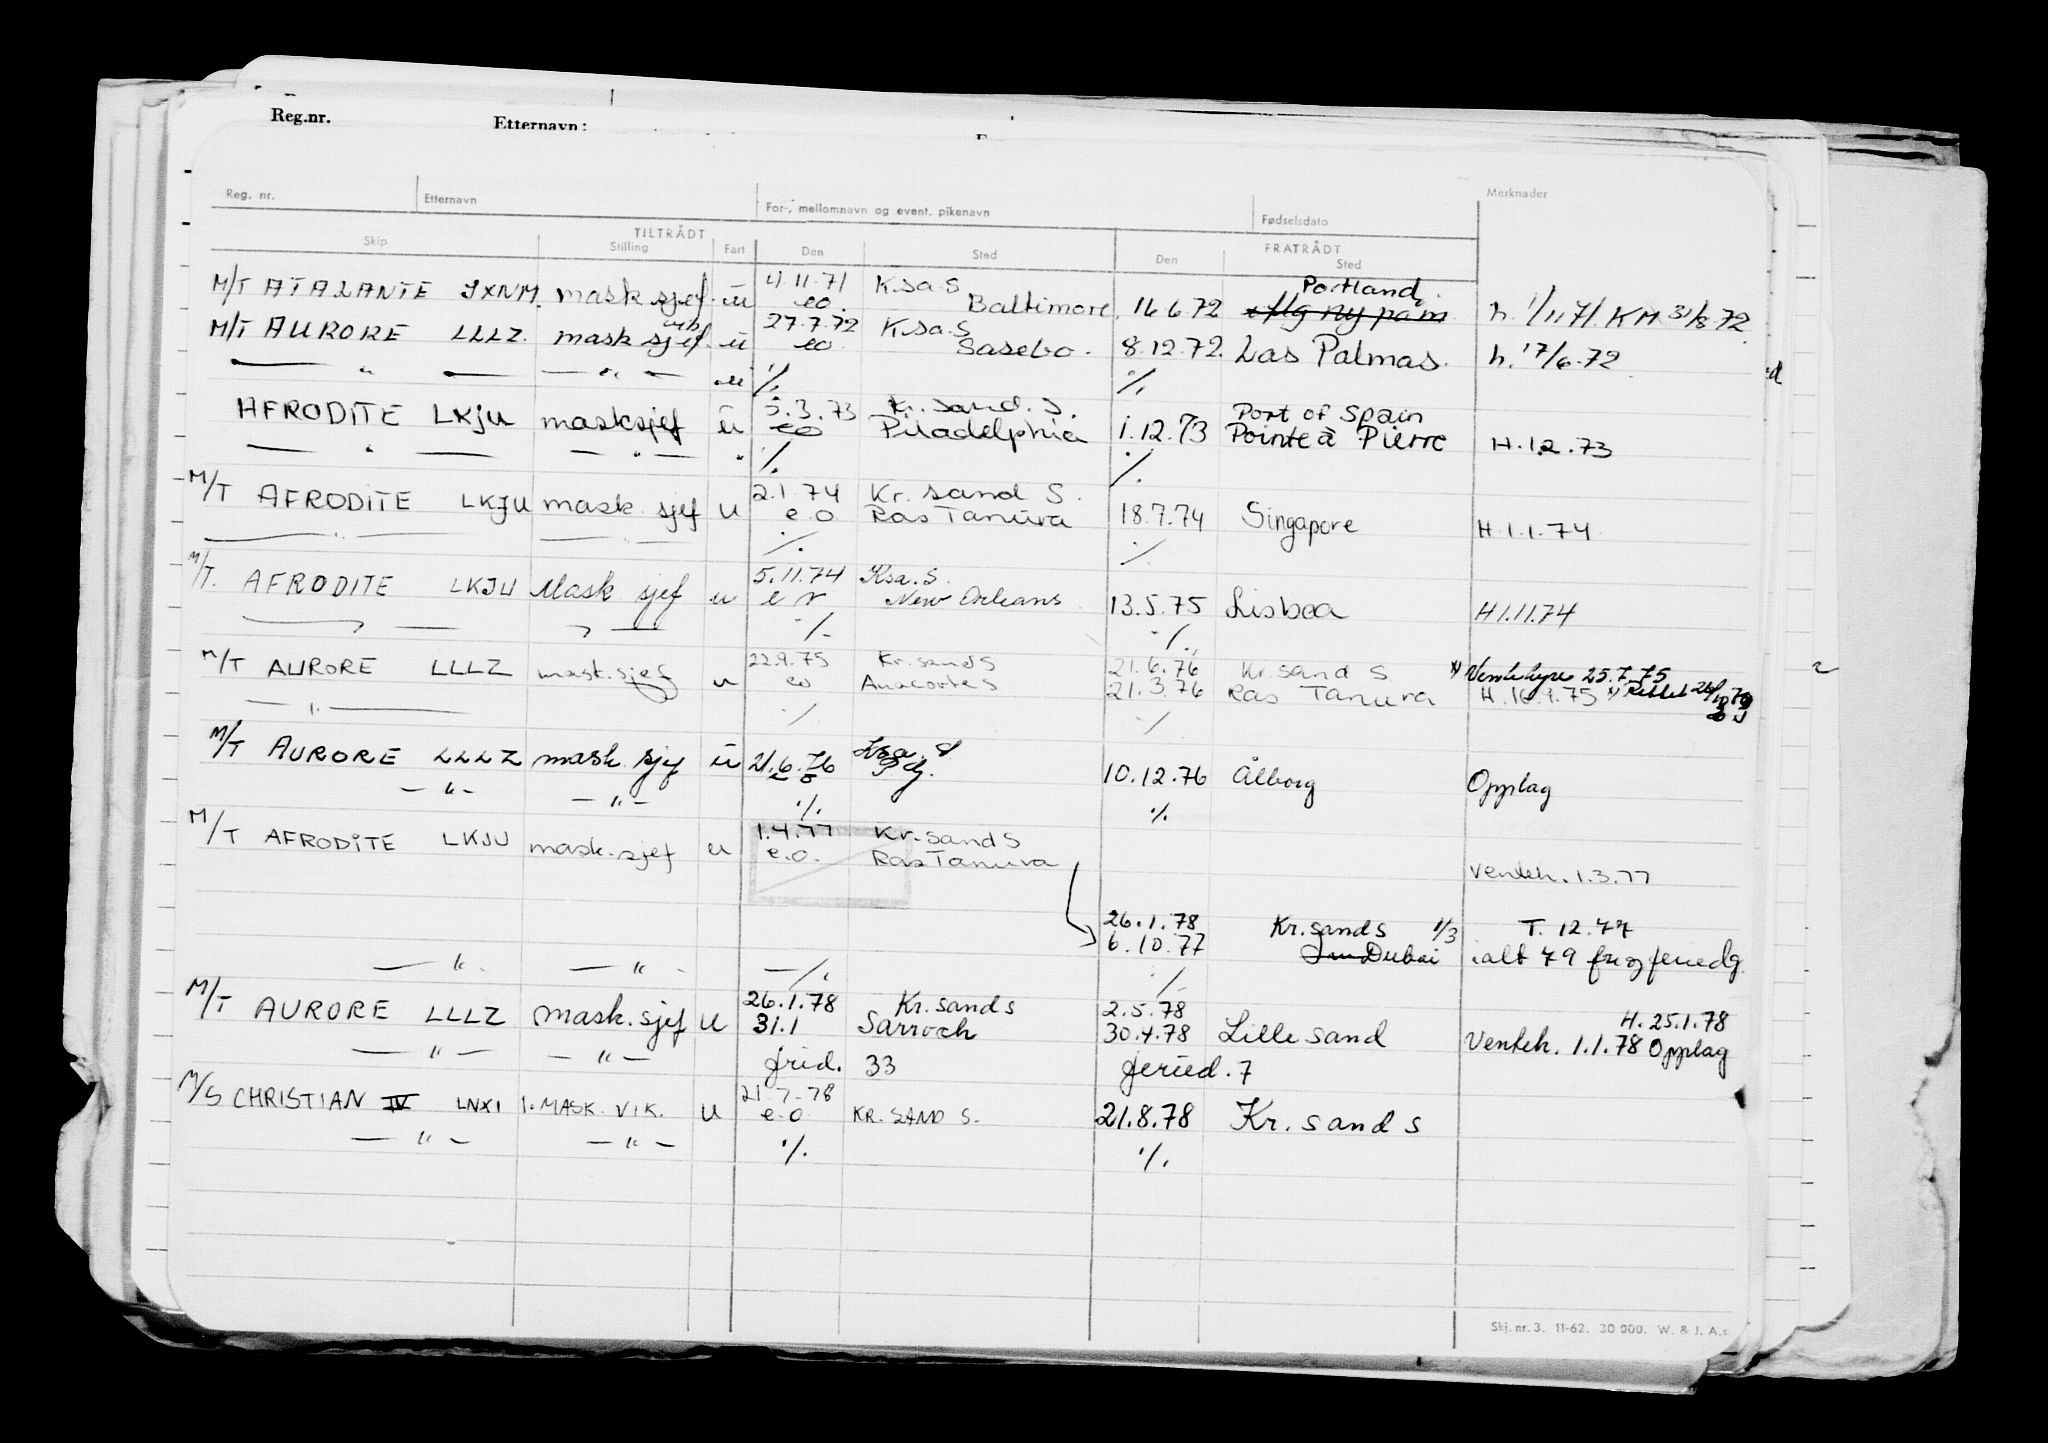 Reg.nr. Etternavn:
Reg. nr. Etternavn For-, mellomnavn og event. pikenavn Fødselsdato Merknader
TILTRÅDT FRATRÅDT
Skip Stilling Fart Den Sted Den Sted
4.11.71 K.sa.S Portland
M/T ATALANTE JXNM. mask sjef ū eo. Baltimore, 16.6.72 h. 1/11 71. KM 31/8 72
27.7.72 K.sa.S
M/T AURORE LLLZ. mask sjef. ū eo Sasebo. 8.12.72. Las Palmas. h. 17/6.72
— " — — " — ./. ./.
5.3.73 Kr. sand. S. Port of Spain
AFRODITE LKJU masksjef ū eo Piladelphia 1.12.73 Pointe à Pierre H.1.2.73
— " — — " — " ./. ./.
2.1.74 Kr. sand S.
M/T AFRODITE LKJU mask. sjef u e.o Ras Tanura 18.7.74 Singapore H.1.1.74
— " — — " — ./. ./.
5.11.74 Ksa.S.
M/T. AFRODITE LKJU Mask sjef u New Orleans 13.5.75 Lisboa H1.11.74
./. ./.
22.9.75 Kr.sand S 21.6.76 Kr.sand S Ventehyre 25.7.75
M/T AURORE LLLZ mask.sjef u eo Anacortes 21.3.76 Ras Tanura H.16.9.75
— " — ./. ./.
M/T AURORE LLLZ mask. sjef ū 21.6.76 10.12.76 Ålborg Opplag
— " — — " — ./. ./.
1.4.77 Kr.sand S
M/T AFRODITE LKJU mask.sjef u e.o. Ras Tanura
Venteh. 1.3.77
26.1.78 Kr.sand S 1/3 T. 12.77
6.10.77 Dubai ialt 79 fri og feriedg.
— " — — " — ./. ./.
26.1.78 Kr.sand S 2.5.78 H. 25.1.78
M/T AURORE LLLZ mask.sjef U 31.1 Sarroch 30.4.78 Lillesand Venteh. 1.1.78 Opplag
— " — — " — frid. 33 feried. 7
21.7.78
M/S CHRISTIAN IV LNXI 1. MASK. VIK. U e.o. KR. SAND S. 21.8.78 Kr. sand S
— " — — " — ./. ./.
Skj. nr. 3. 11-62. 30 000. W. & J. A.s.